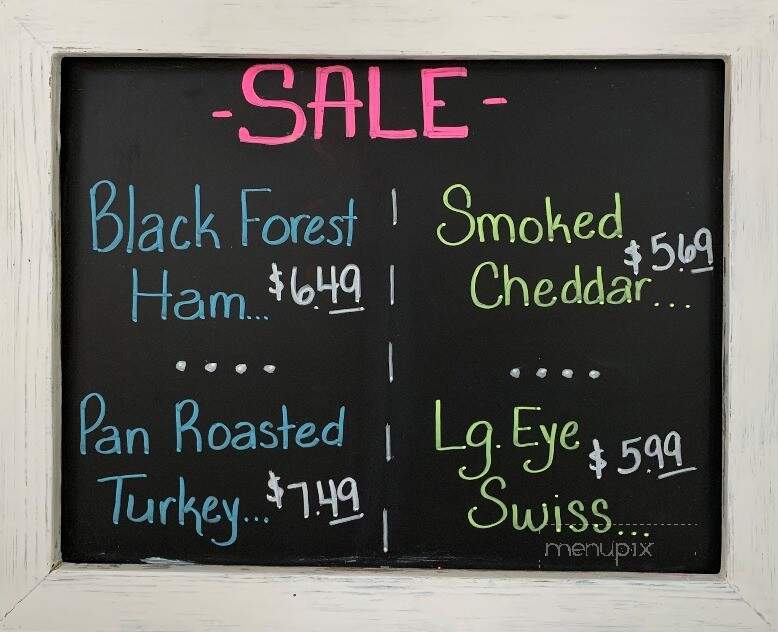 -SALE-
Black Forest
Ham... $6.49
....
Pan Roasted
Turkey... $7.49
Smoked
Cheddar... $5.69
....
Lg. Eye
Swiss... $5.99
menupix